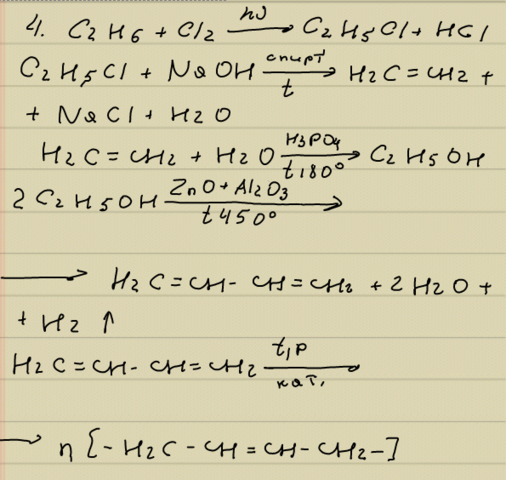 4. C2H6 + Cl2 hν→ C2H5Cl + HCl
C2H5Cl + NaOH спирт→t H2C=CH2 +
+ NaCl + H2O
H2C=CH2 + H2O H3PO4→t180° C2H5OH
2C2H5OH ZnO+Al2O3→t450°
→ H2C=CH-CH=CH2 + 2H2O +
+ H2↑
H2C=CH-CH=CH2 t,p→кат.
→ n[-H2C-CH=CH-CH2-]